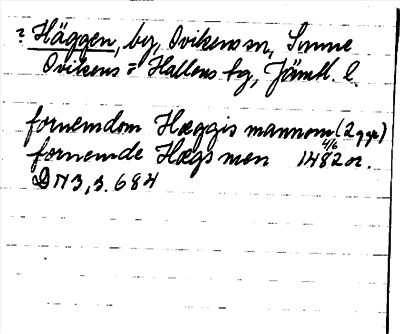 ? Häggen, by, Ovikens sn, Sunne
Ovikens = Hallens tg, Jämtl. l.
fornemdom Hæggis mannom (2 ggr)
fornemde Hægs men 1482 4/6 or.
DN 3, s. 684